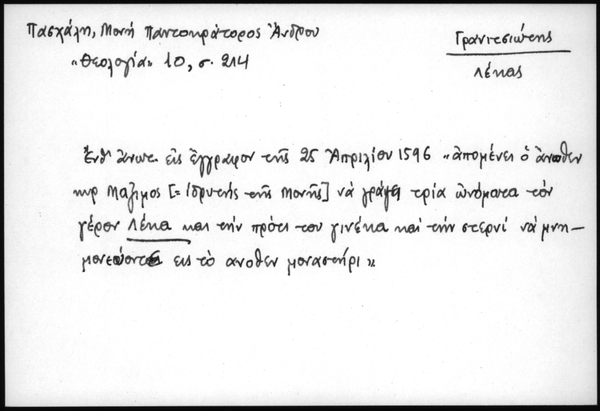 Πασχάλη, Μονή Παντοκράτορος Ἄνδρου
«Θεολογία» 10, σ. 214
Γραντεσιώτης
Λέκας
Ἔνθ' ἄνωτ. εἰς ἔγγραφον τῆς 25 Ἀπριλίου 1596 «ἀπομένει ὁ ἄνοθεν
κυρ Μάξιμος [= ἱδρυτής τῆς Μονῆς] νὰ γράψει τρία ὠνόματα τόν
γέρον Λέκα και τὴν πρότι του γινέκα καί τήν στερνί νὰ μνη-
μονεύοντε εις τὸ ανοθεν μοναστήρι»